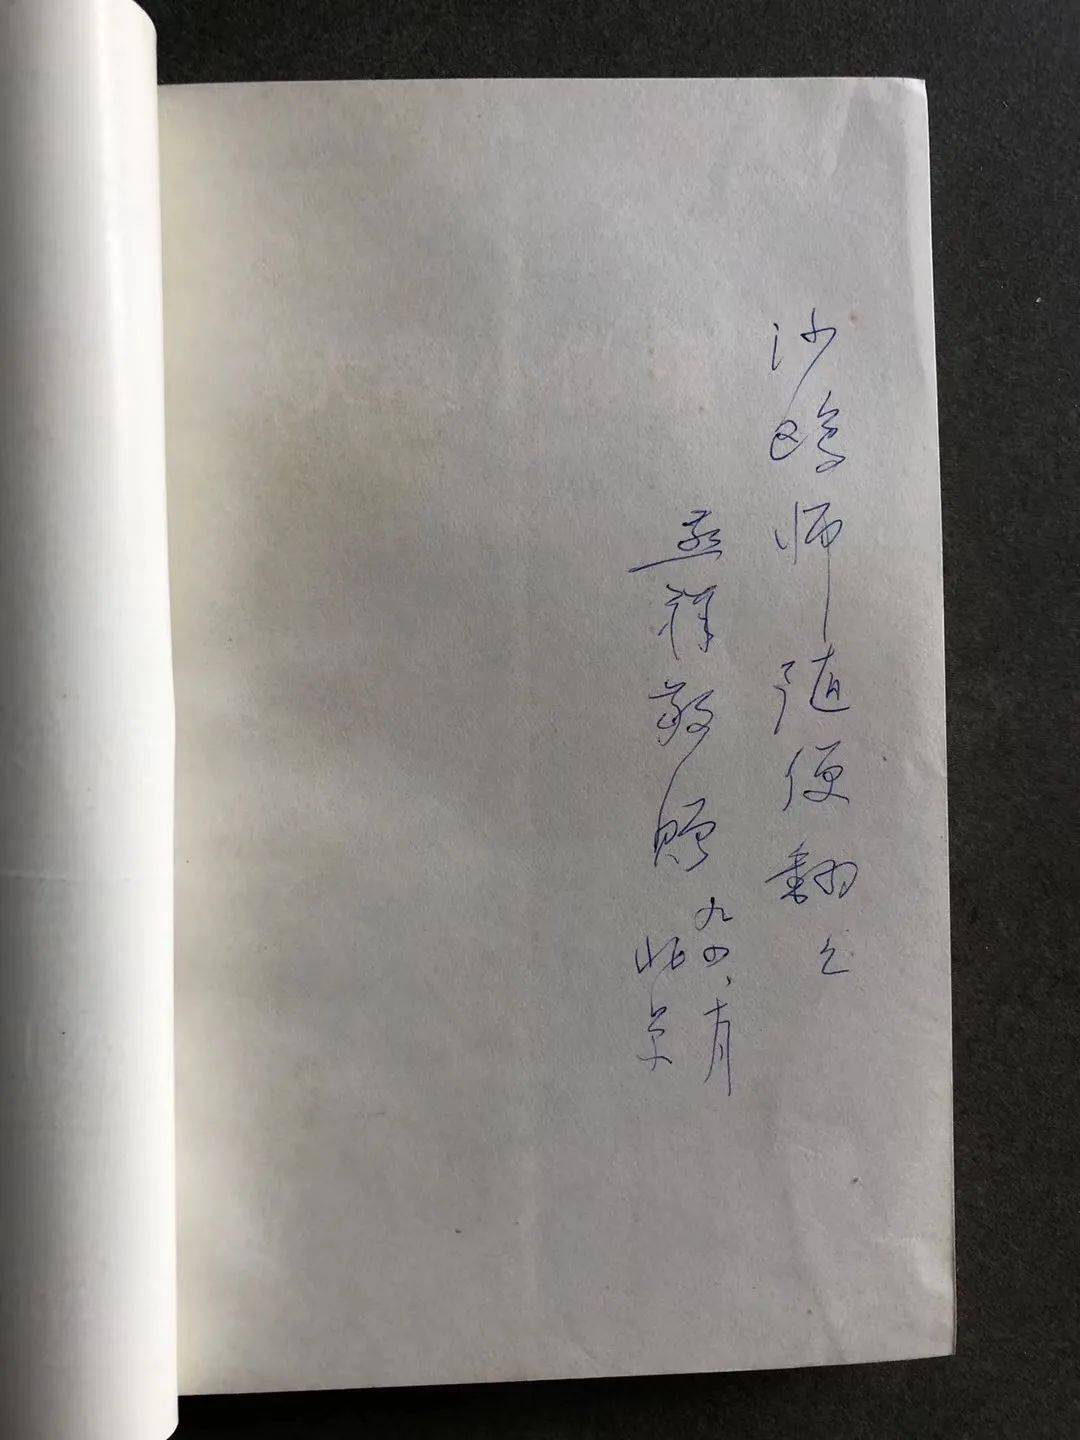 沙鸥师随便翻々
燕祥敬赠
九四、月
北京